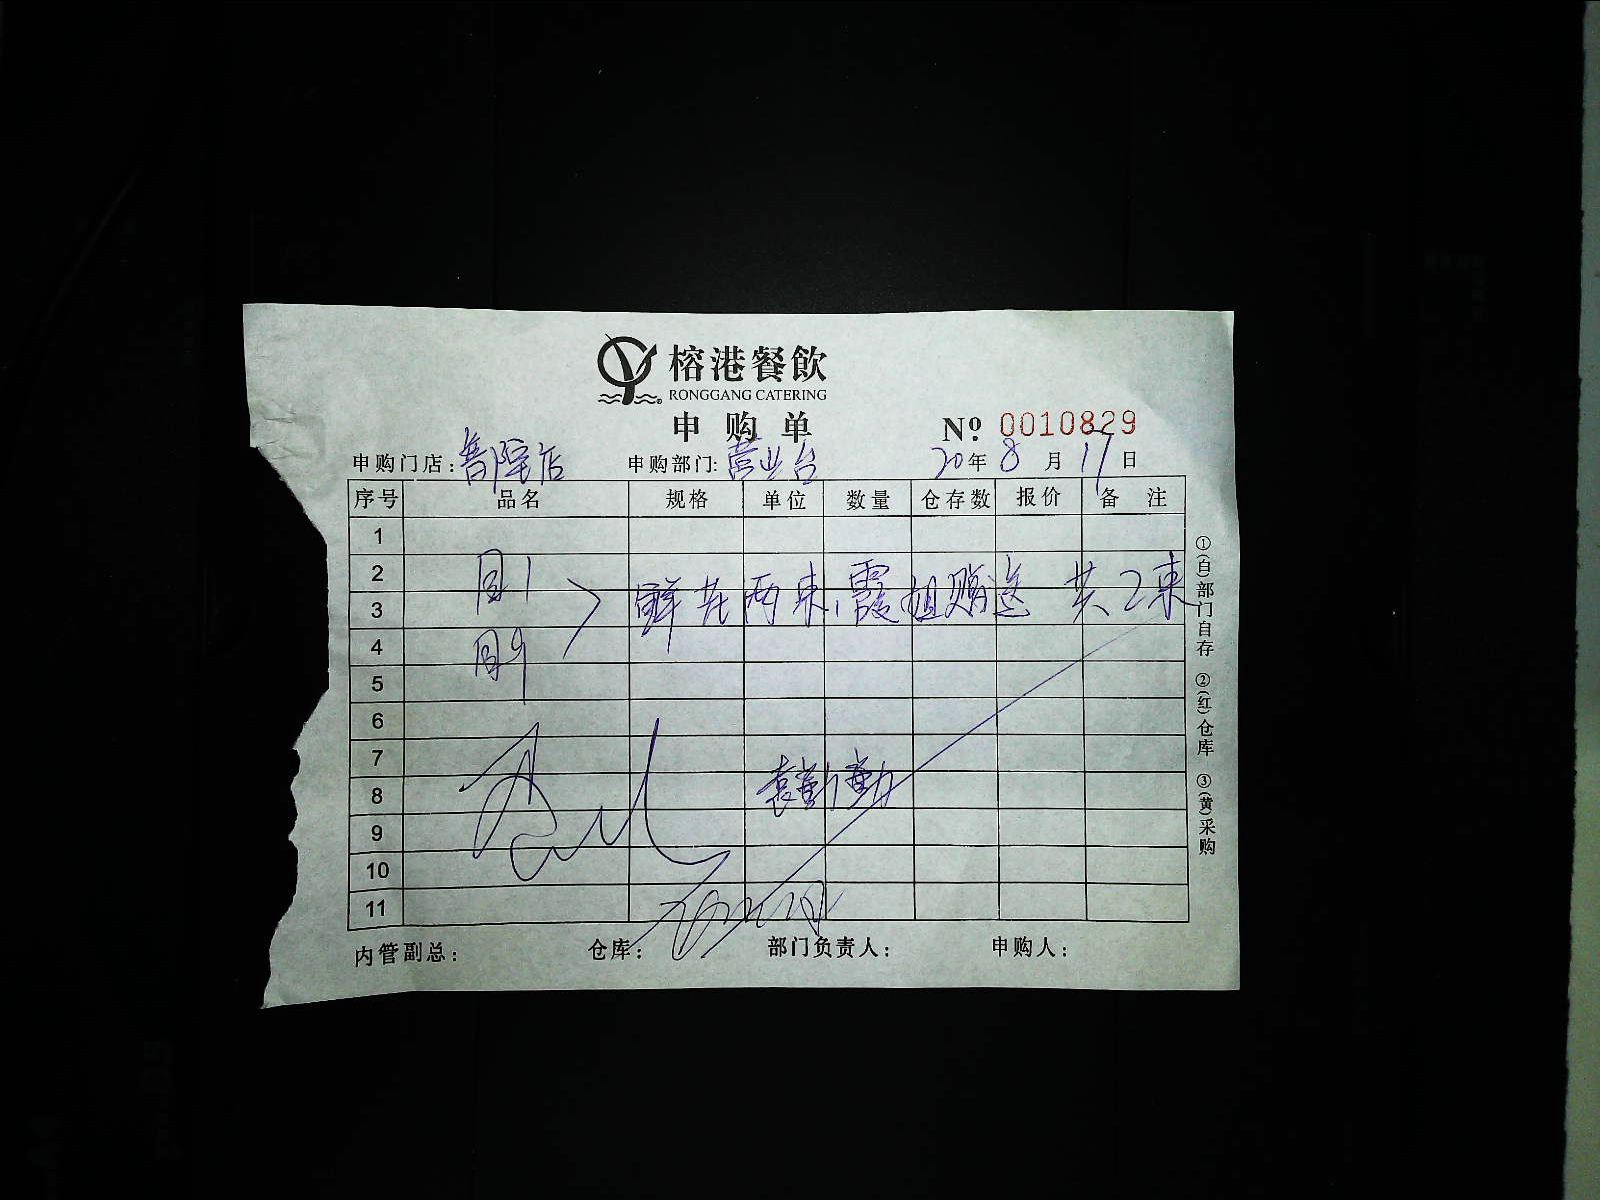 榕港餐飲
RONGGANG CATERING
申购单
Nº 0010829
申购门店: 部院店 申购部门: 营业台 20年8月17日
序号 品名 规格 单位 数量 仓存数 报价 备注
1
2
3
鲜花两束,霞姐赠送 共2束
4
5
6
7
8
袁勤勤
9
10
11
内管副总: 仓库: 部门负责人: 申购人:
①(白)部门自存 ②(红)仓库 ③(黄)采购